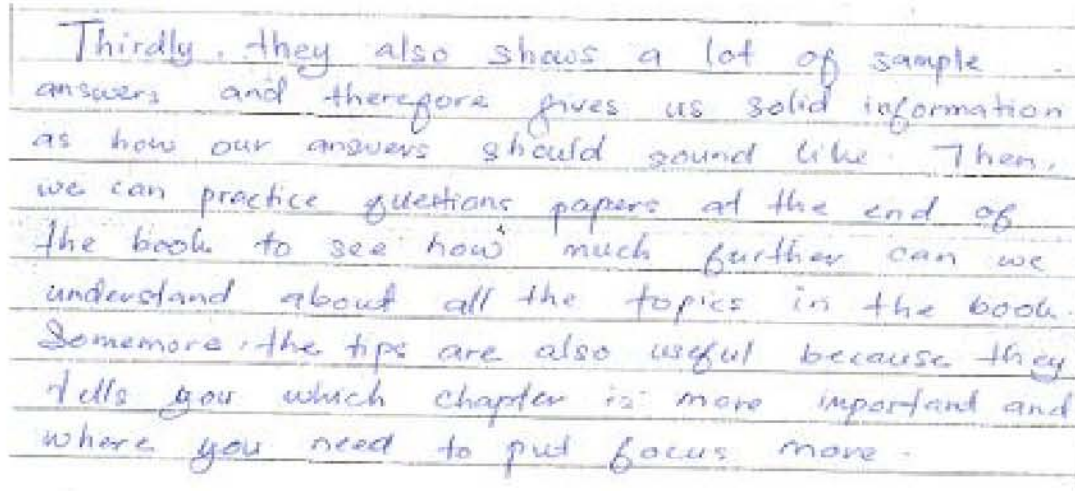 Thirdly, they also shows a lot of sample
answers and therefore gives us solid information
as how our answers should sound like. Then,
we can practice questions papers at the end of
the book to see how much further can we
understand about all the topics in the book.
Somemore, the tips are also useful because they
tells you which chapter is more important and
where you need to put focus more.